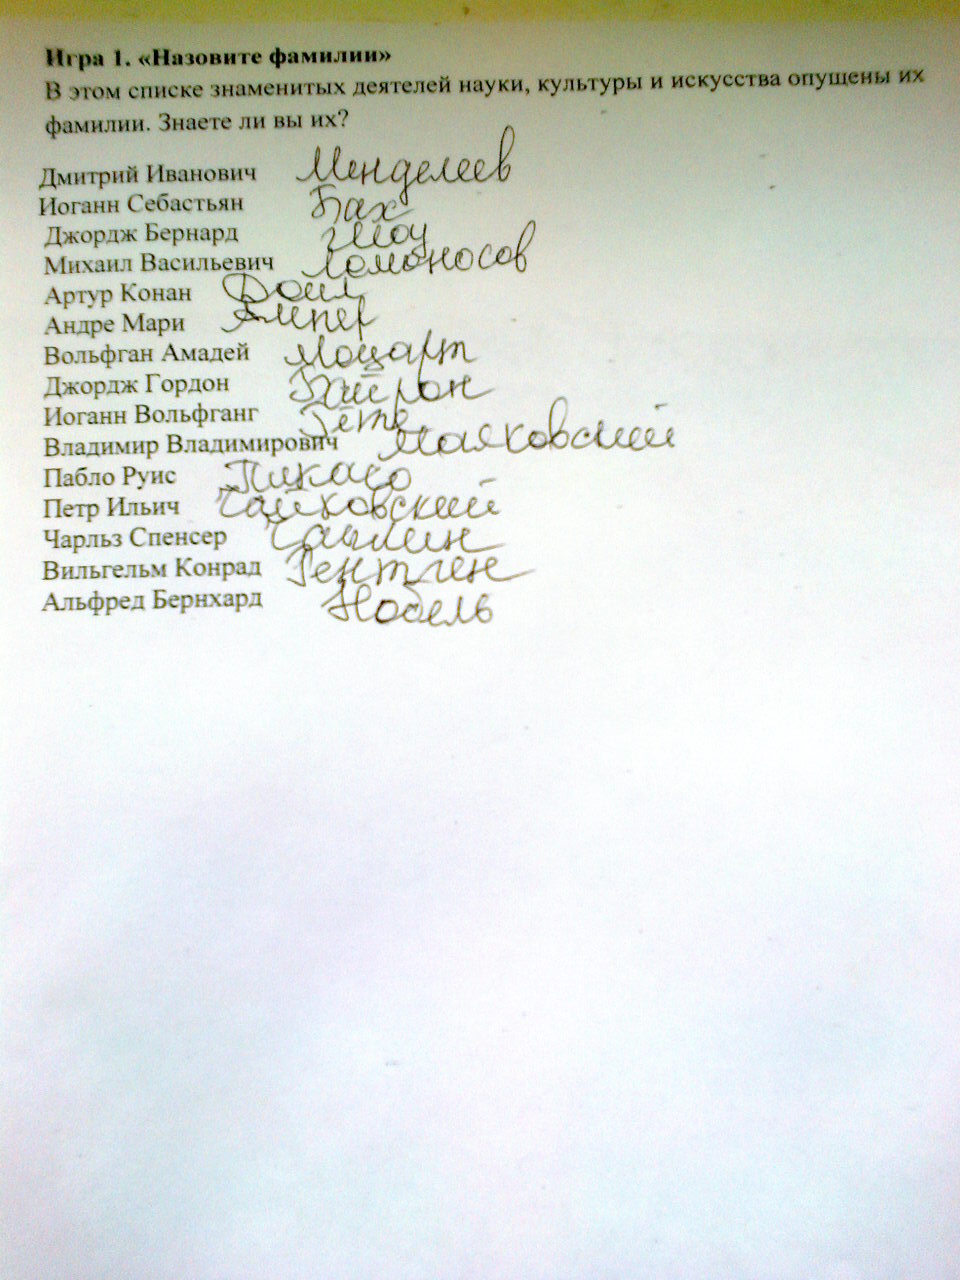 Игра 1. «Назовите фамилии»
В этом списке знаменитых деятелей науки, культуры и искусства опущены их
фамилии. Знаете ли вы их?
Дмитрий Иванович Менделеев
Иоганн Себастьян Бах
Джордж Бернард Шоу
Михаил Васильевич Ломоносов
Артур Конан Дойл
Андре Мари Ампер
Вольфган Амадей Моцарт
Джордж Гордон Байрон
Иоганн Вольфганг Гёте
Владимир Владимирович Маяковский
Пабло Руис Пикассо
Петр Ильич Чайковский
Чарльз Спенсер Чаплин
Вильгельм Конрад Рентген
Альфред Бернхард Нобель